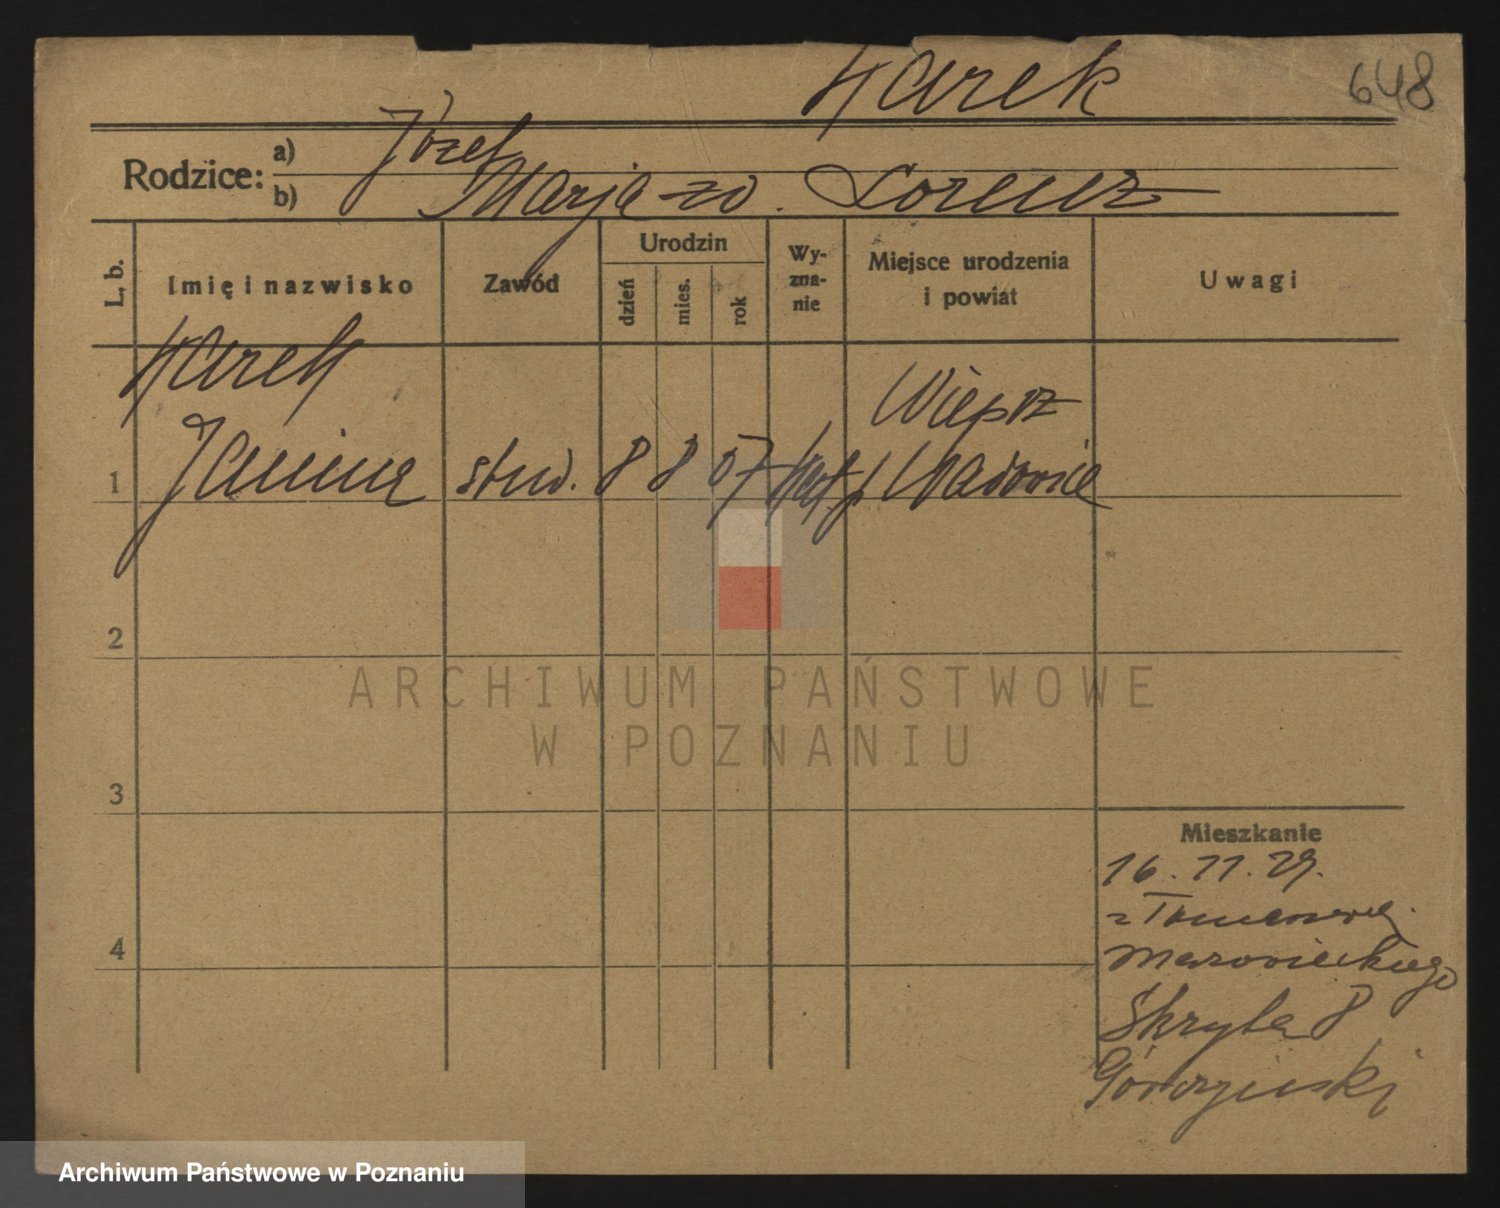 Harek
648
Rodzice: a) Józef
b) Marja zd. Lorenz
L. b.
Imię i nazwisko
Zawód
Urodzin
dzień
mies.
rok
Wy-
zna-
nie
Miejsce urodzenia
i powiat
Uwagi
Harek
Wieprz
1 Janina stud. 8 8 07 kat. p. Wadowice
2
3
4
Mieszkanie
16.11.29.
z Tomaszowa
Mazowieckiego
Skryta 8
Górczyński
ARCHIWUM PAŃSTWOWE
W POZNANIU
Archiwum Państwowe w Poznaniu